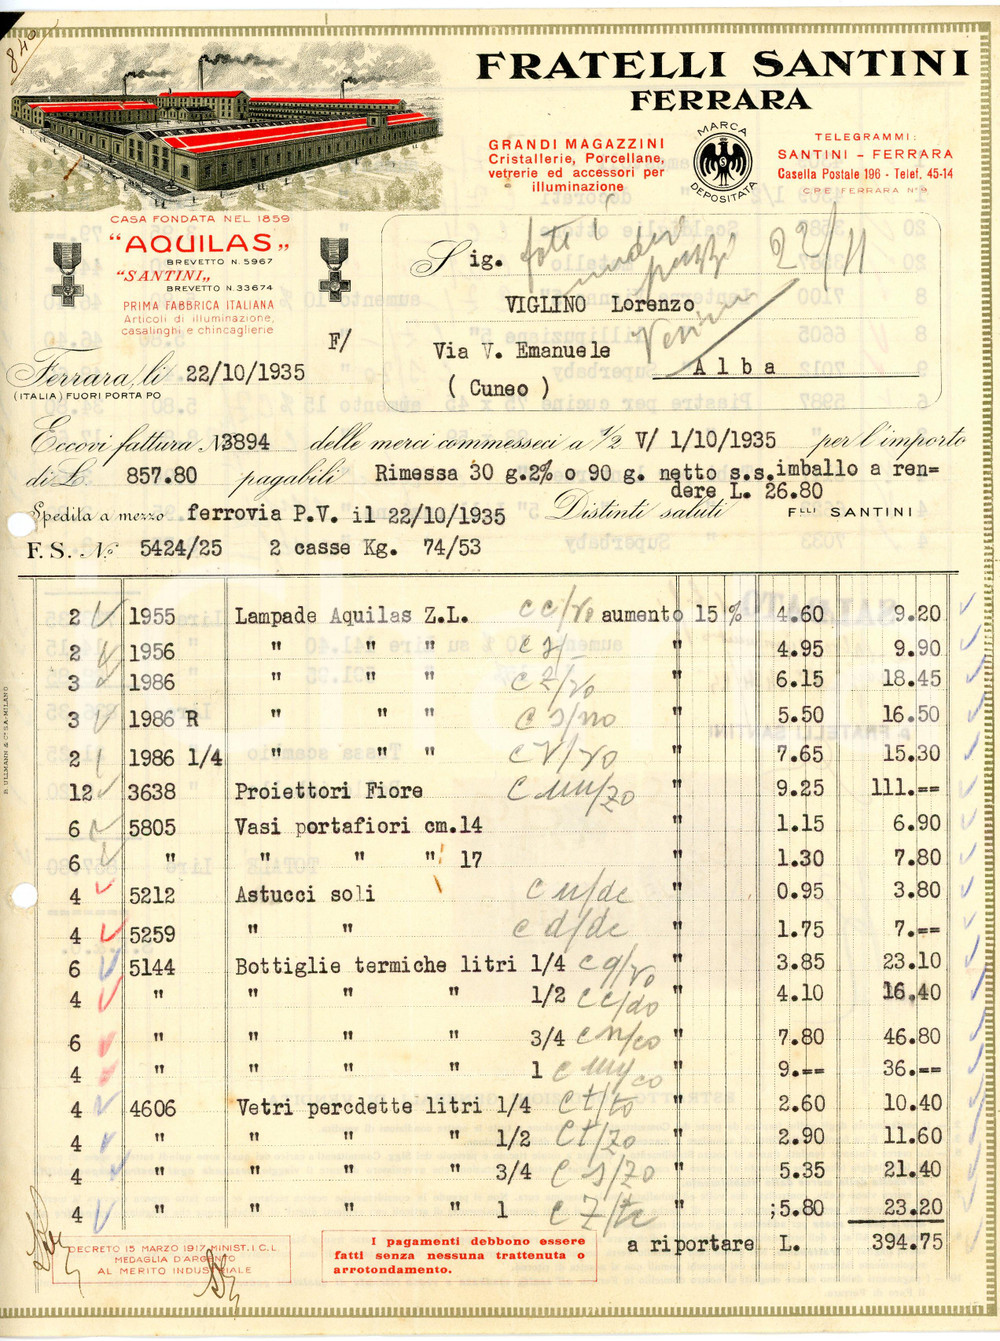 840
FRATELLI SANTINI
FERRARA
GRANDI MAGAZZINI
Cristallerie, Porcellane,
vetrerie ed accessori per
illuminazione
MARCA
DEPOSITATA
TELEGRAMMI:
SANTINI - FERRARA
Casella Postale 196 - Telef. 45-14
C.P.E. FERRARA N° 9
CASA FONDATA NEL 1859
"AQUILAS"
BREVETTO N. 5967
"SANTINI"
BREVETTO N. 33674
PRIMA FABBRICA ITALIANA
Articoli di illuminazione,
casalinghi e chincaglierie
Sig.
22/11
VIGLINO Lorenzo
F/
Via V. Emanuele
Alba
( Cuneo )
Ferrara, li 22/10/1935
(ITALIA) FUORI PORTA PO
Eccovi fattura N. 13894 delle merci commesseci a 1/2 V/ 1/10/1935 per l'importo
di L. 857.80 pagabili Rimessa 30 g.2% o 90 g. netto s.s.imballo a ren=
dere L. 26.80
Spedita a mezzo ferrovia P.V. il 22/10/1935 Distinti saluti Flli SANTINI
F. S. No 5424/25 2 casse Kg. 74/53
2 1955 Lampade Aquilas Z.L. aumento 15 % 4.60 9.20
2 1956 " " " " 4.95 9.90
3 1986 " " " " 6.15 18.45
3 1986 R " " " " 5.50 16.50
2 1986 1/4 " " " " 7.65 15.30
12 3638 Proiettori Fiore " 9.25 111.==
6 5805 Vasi portafiori cm.14 " 1.15 6.90
6 " " " " 17 " 1.30 7.80
4 5212 Astucci soli " 0.95 3.80
4 5259 " " " 1.75 7.==
6 5144 Bottiglie termiche litri 1/4 " 3.85 23.10
4 " " " " 1/2 " 4.10 16.40
6 " " " " 3/4 " 7.80 46.80
4 " " " " 1 " 9.== 36.==
4 4606 Vetri percdette litri 1/4 " 2.60 10.40
4 " " " " 1/2 " 2.90 11.60
4 " " " " 3/4 " 5.35 21.40
4 " " " " 1 " ;5.80 23.20
a riportare L. 394.75
DECRETO 15 MARZO 1917 MINIST. I.C.L.
MEDAGLIA D'ARGENTO
AL MERITO INDUSTRIALE
I pagamenti debbono essere
fatti senza nessuna trattenuta o
arrotondamento.
B. ULLMANN & C° S.A. MILANO